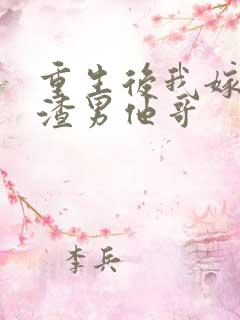 重生後我嫁
渣男他哥
李兵